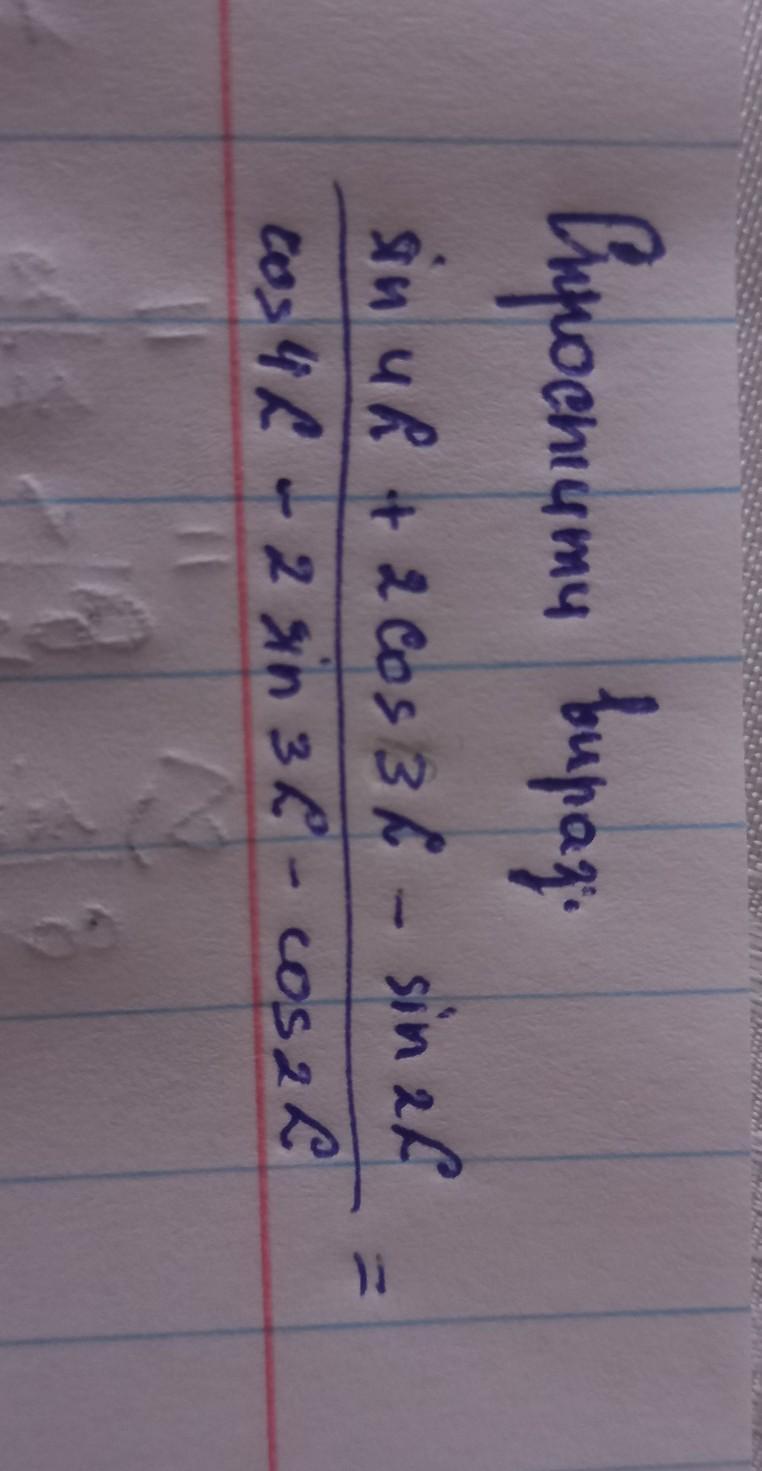 Спростити вираз.
sin 4α + 2cos 3α - sin 2α
cos 4α - 2 sin 3α - cos 2α =